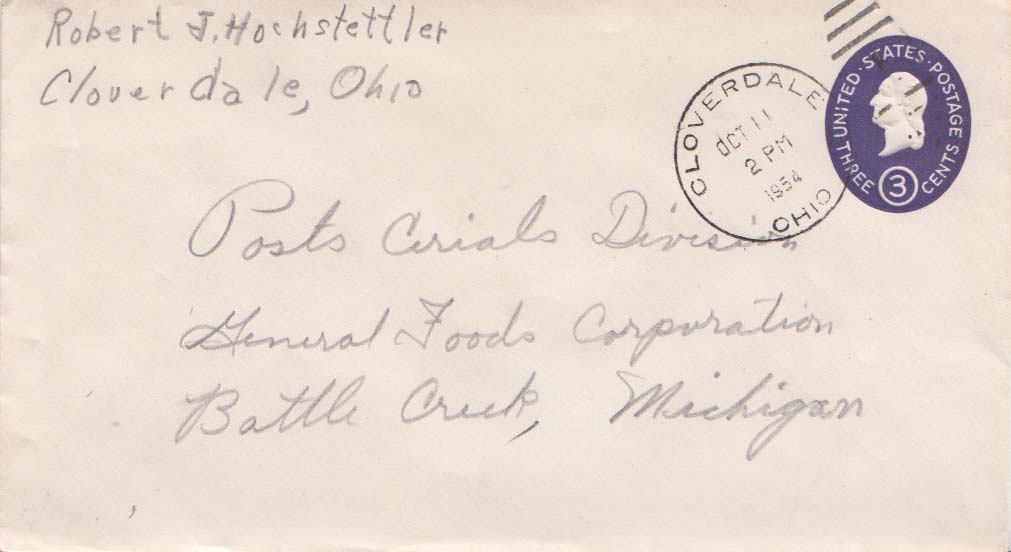 Robert J. Hochstettler
Cloverdale, Ohio
CLOVERDALE
OCT 11
2 PM
1954
OHIO
UNITED · STATES · POSTAGE
THREE 3 CENTS
Posts Cerials Division
General Foods Corporation
Battle Creek, Michigan